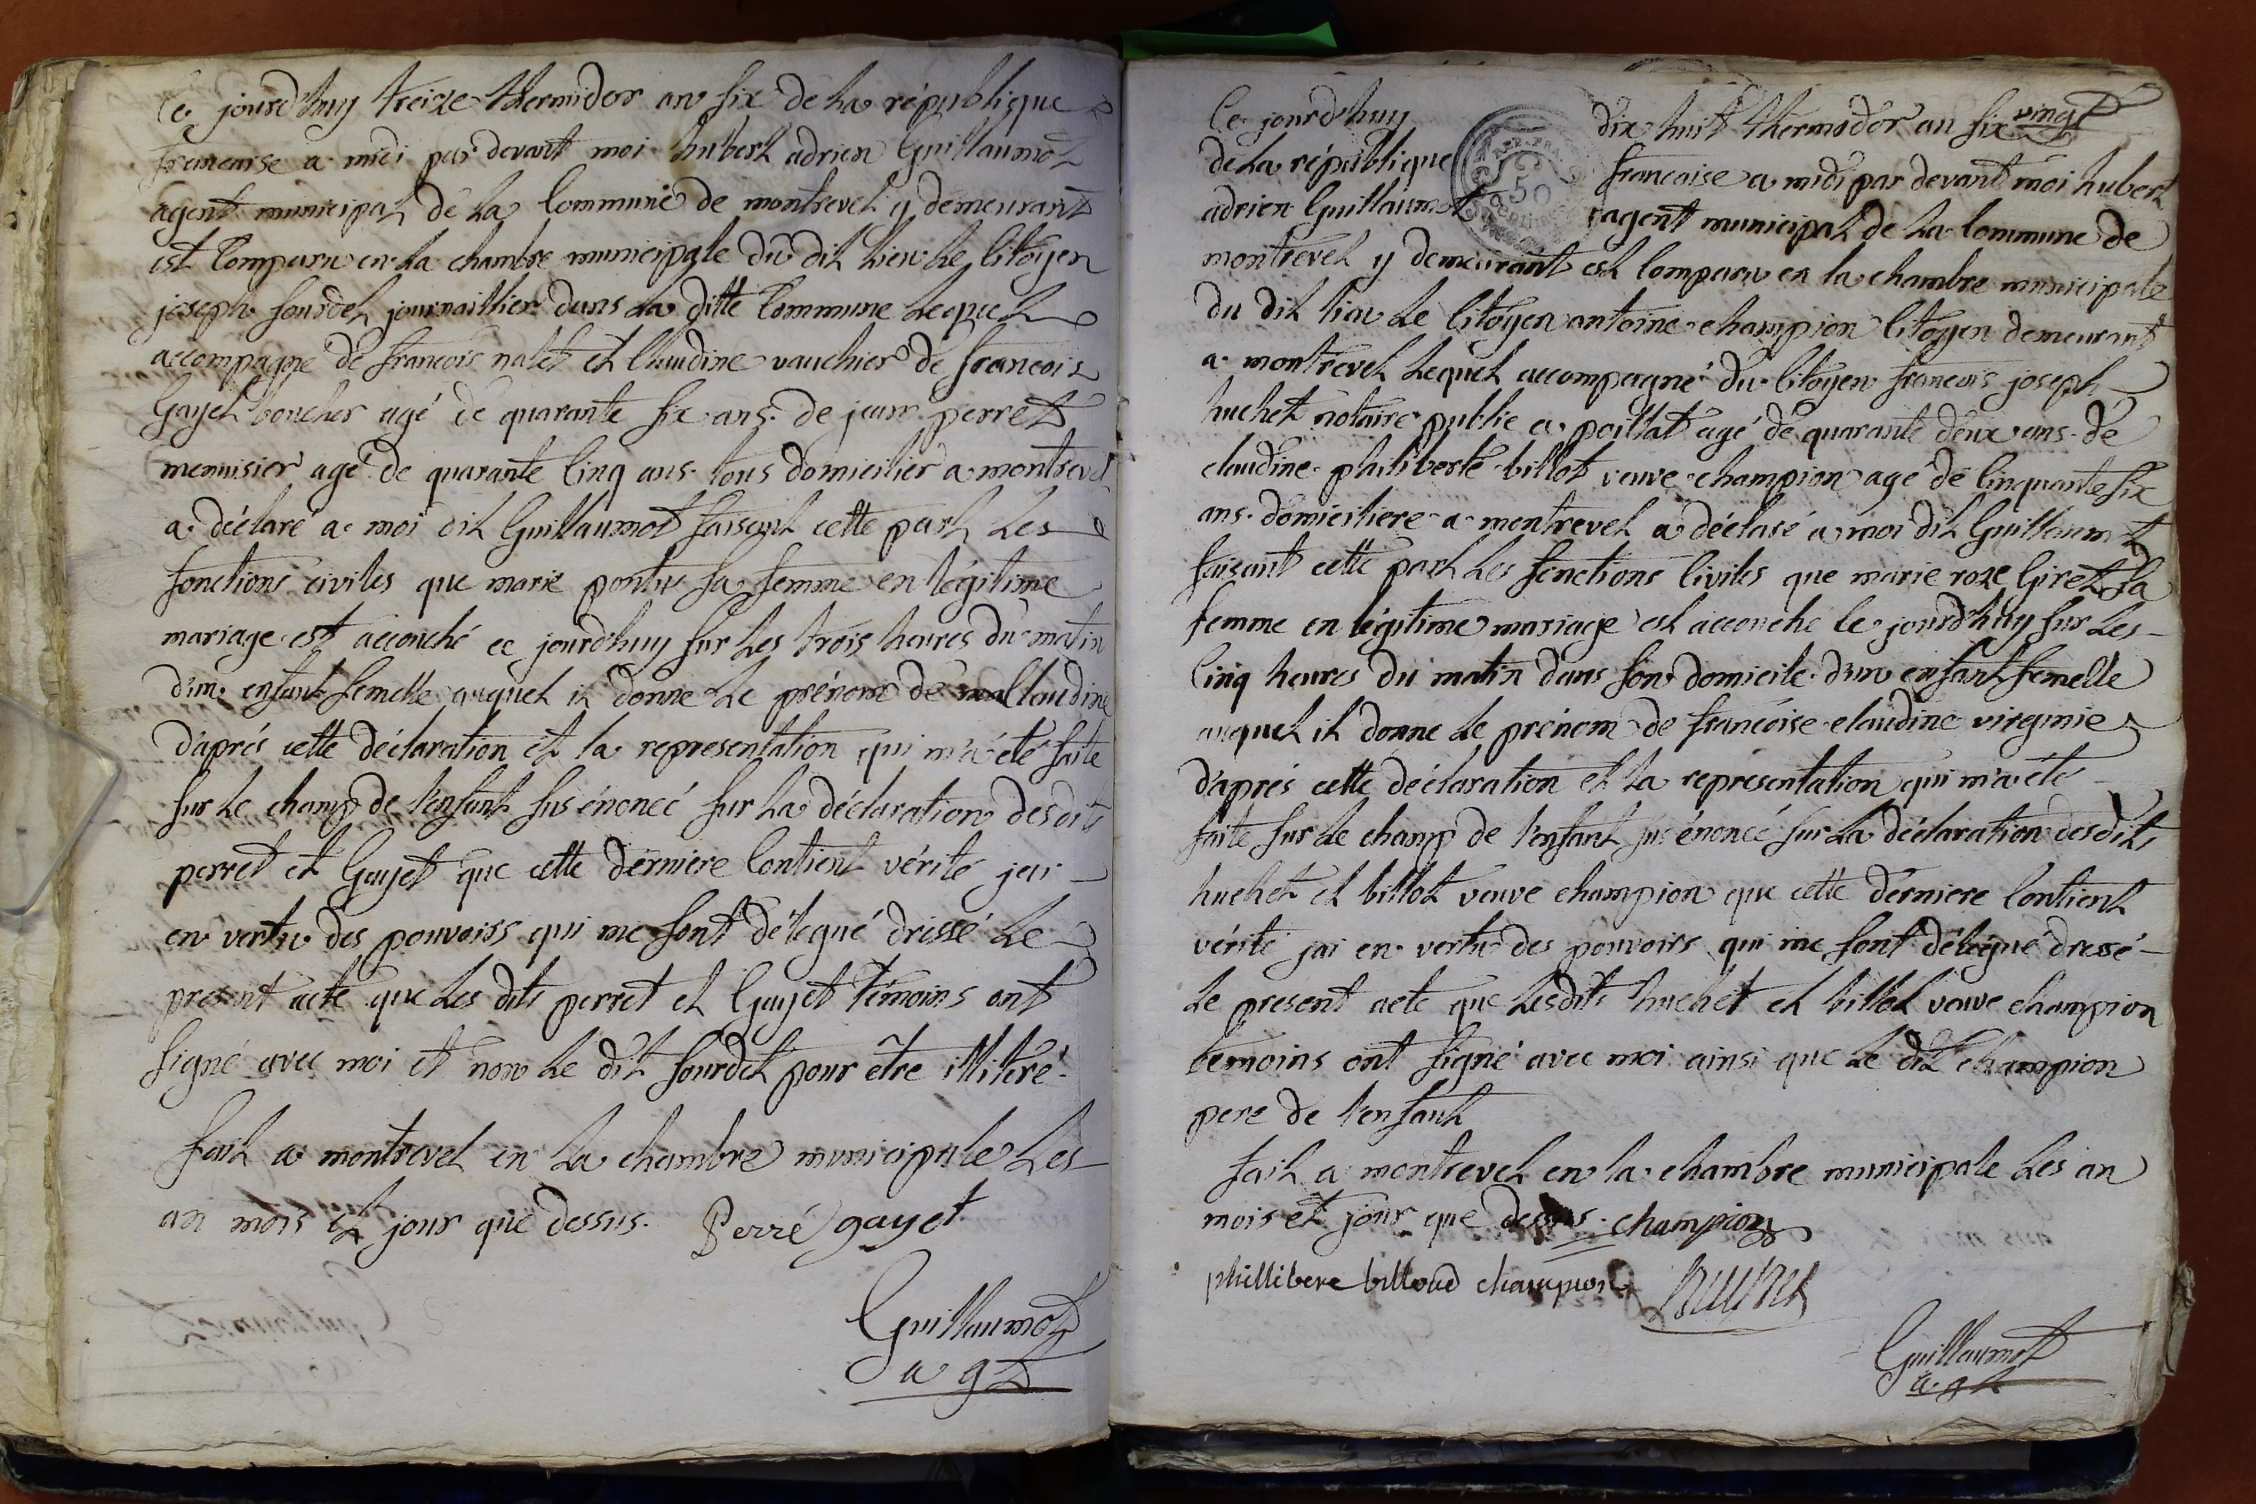 Ce jourd'huy treize thermidor an six de la république
francaise a midi par devant moi hubert adrien Guillaumot
agent municipal de la Commune de montrevel y demeurant
est Comparu en la chambre municipale du dit lieu le Citoyen
joseph sourdet journaillier dans la ditte Commune lequel
accompagné de francois nalet et Claudine vauchier de francois
Gayet boucher agé de quarante six ans. de jean perret
menuisier agé de quarante Cinq ans. tous domicilier a montrevel
a déclaré a moi dit Guillaumot faisant cette part les
fonctions civiles que marie pontu sa femme en légitime
mariage est accouché ce jourd'huy sur les trois heures du matin
d'un enfant femelle auquel il donne le prénom de Claudine
d'aprés cette déclaration et la representation qui m'a été faite
sur le champ de l'enfant sus énoncé sur la déclaration desdits
perret et Gayet que cette derniere Contient vérité jai
en vertu des pouvoirs qui me sont délegué dréssé le
present acte que les dits perret et Gayet témoins ont
signé avec moi et non le dit sourdet pour être illiteré.
fait a montrevel en la chambre municipale les
an mois et jour que dessus. Perré gayet
Guillaumot
agt
vingt
Ce jourd'huy dix huit thermidor an six
de la république francaise a midi par devant moi hubert
adrien Guillaumot agent municipal de la Commune de
montrevel y demeurant est Comparu en la chambre municipale
du dit lieu le Citoyen antoine champion Citoyen demeurant
a montrevel lequel accompagné du Citoyen francois joseph
huchet notaire public a poillat agé de quarante deux ans. de
claudine philiberte billot veuve champion agé de Cinquante six
ans. domiciliere a montrevel a déclaré a moi dit Guillaumot
faisant cette part les fonctions Civiles que marie roze Giret sa
femme en légitime mariage est accouché le jourd'huy sur les
Cinq heures du matin dans son domicile d'un enfant femelle
auquel il donne le prénom de francoise claudine virginie
d'aprés cette déclaration et la représentation qui m'a été
faite sur le champ de l'enfant sus énoncé sur la déclaration desdits
huchet et billot veuve champion que cette derniere Contient
vérité jai en vertu des pouvoirs qui me sont délégué dressé
le present acte que lesdits huchet et billot veuve champion
temoins ont signé avec moi ainsi que le dit champion
pere de l'enfant
fait a montrevel en la chambre municipale les an
mois et jour que dessus. champion
phillibere billoud champion huchet
Guillaumot
agt
REP. FRA.
50